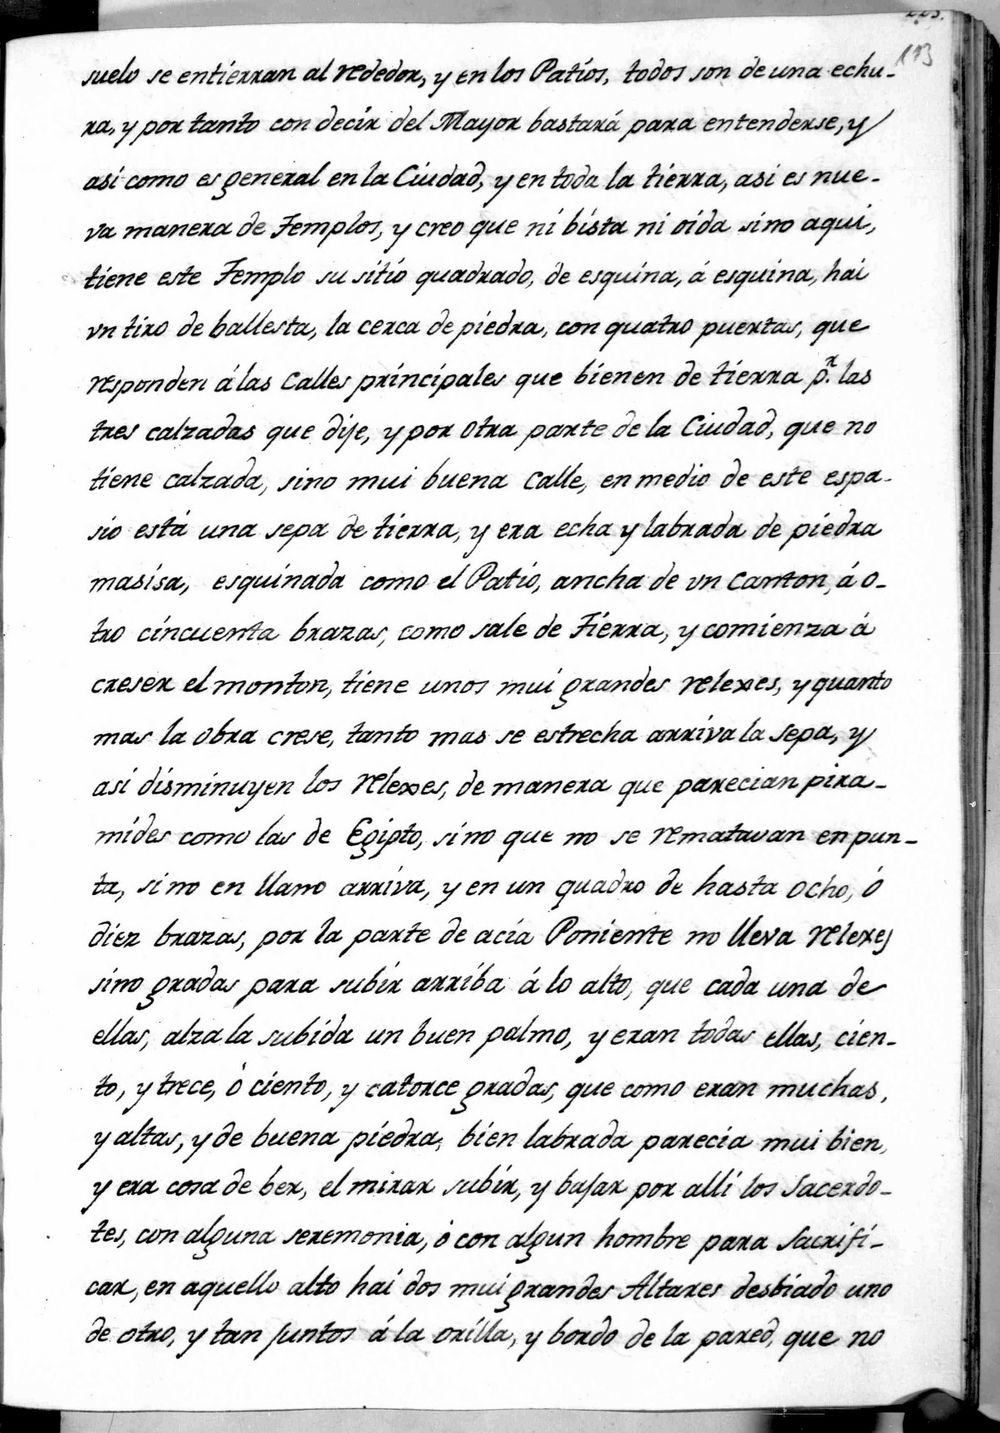 223.
113
suelo se entierran al rededor, y en los Patios, todos son de una echu-
ra, y por tanto con decir del Mayor bastará para entenderse, y
asi como es general en la Ciudad, y en toda la tierra, asi es nue-
va manera de Templos, y creo que ni bista ni oida sino aqui,
tiene este Templo su sitio quadrado, de esquina, á esquina, hai
vn tiro de ballesta, la cerca de piedra, con quatro puertas, que
responden á las Calles principales que bienen de tierra p.r las
tres calzadas que dije, y por otra parte de la Ciudad, que no
tiene calzada, sino mui buena Calle, en medio de este espa-
sio está una sepa de tierra, y era echa y labrada de piedra
masisa, esquinada como el Patio, ancha de vn Canton, á o-
tro cincuenta brazas, como sale de Tierra, y comienza á
creser el monton, tiene unos mui grandes relexes, y quanto
mas la obra crese, tanto mas se estrecha arriva la sepa, y
asi disminuyen los relexes, de manera que parecian pira-
mides como las de Egipto, sino que no se rematavan en pun-
ta, sino en llano arriva, y en un quadro de hasta ocho, ó
diez brazas, por la parte de acia Poniente no lleva relexes
sino gradas para subir arriba á lo alto, que cada una de
ellas, alza la subida un buen palmo, y eran todas ellas, cien-
to, y trece, ó ciento, y catorce gradas, que como eran muchas,
y altas, y de buena piedra, bien labrada parecia mui bien,
y era cosa de ber, el mirar subir, y bajar por alli los Sacerdo-
tes, con alguna seremonia, ó con algun hombre para Sacrifi-
car, en aquello alto hai dos mui grandes Altares desbiado uno
de otro, y tan juntos á la orilla, y bordo de la pared, que no